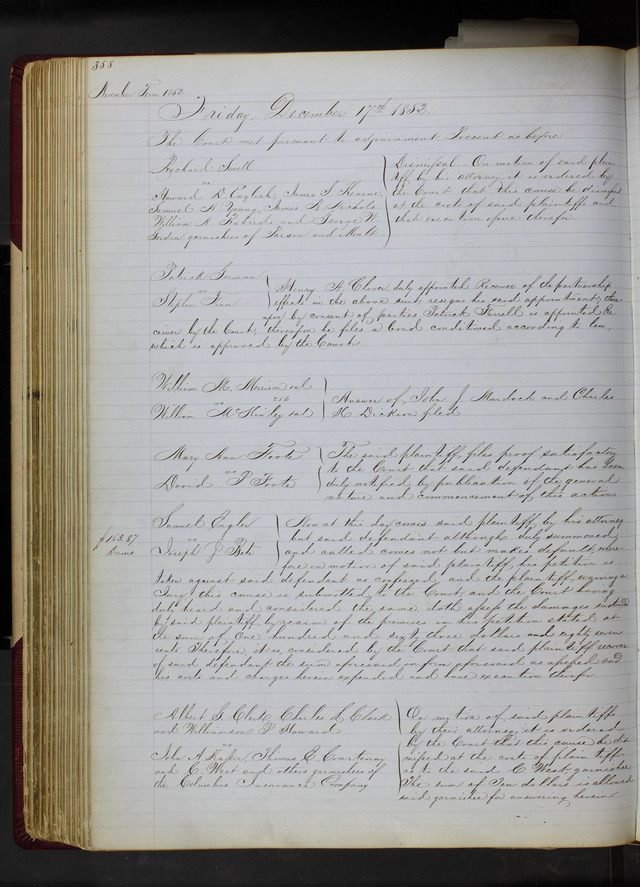 358
November Term 1852
Friday December 17th 1852.
The Court met pursuant to adjournment Present as before
Richard Swill
vs
Edward D. English, James S. Kearney
Samuel H. Young, James R. Nichols
William A. and George W.
garnishees of Parson and
Dismissal. On motion of said plain
tiff by his attorney it is ordered by
the Court that this cause be dismissed
at the costs of said plaintiff and
that execution issue therefor
Patrick
vs
Stephen
Henry A. Clover, duly appointed Receiver of the partnership
effects in the above suit, resigns his said appointment, there
upon by consent of parties Patrick Farrell is appointed Re
ceiver by the Court, thereupon he files a bond conditioned according to law,
which is approved by the Court
William M. Morrison et al
vs 216
William McKinley et al
Answer of John J. Murdock and Charles
K. Dickson filed
Mary Ann Foote
vs
David P Foote
The said plaintiff files proof satisfactory
to the Court that said defendant has been
duly notified by publication of the general
nature and commencement of this action
Samuel Engler
vs
Joseph J.
$163.87
Dams.
Now at this day comes said plaintiff by his attorney
but said defendant although duly summoned
and called comes not but makes default where
fore on motion of said plaintiff his petition is
taken against said defendant as confessed, and the plaintiff waiving a
Jury this cause is submitted to the Court and the Court having
duly heard and considered the same doth assess the damages sustained
by said plaintiff by reason of the premises in his petition stated at
the sum of One hundred and sixty three dollars and eighty seven
cents Therefore it is considered by the Court that said plaintiff recover
of said defendant the sum aforesaid in form aforesaid as assessed and
his costs and charges herein expended and have execution therefor
Albert G. Clark, Charles L. Clark
and Williamson P Howard
vs
John A Kasson, Thomas E. Courtenay
and E West and others garnishees of
the Columbus Insurance Company
On motion of said plaintiffs
by their attorney it is ordered
by the Court that this cause be dis
missed at the costs of plaintiffs
as to the said E West, garnishee
The sum of Ten dollars is allowed
said garnishee for answering herein